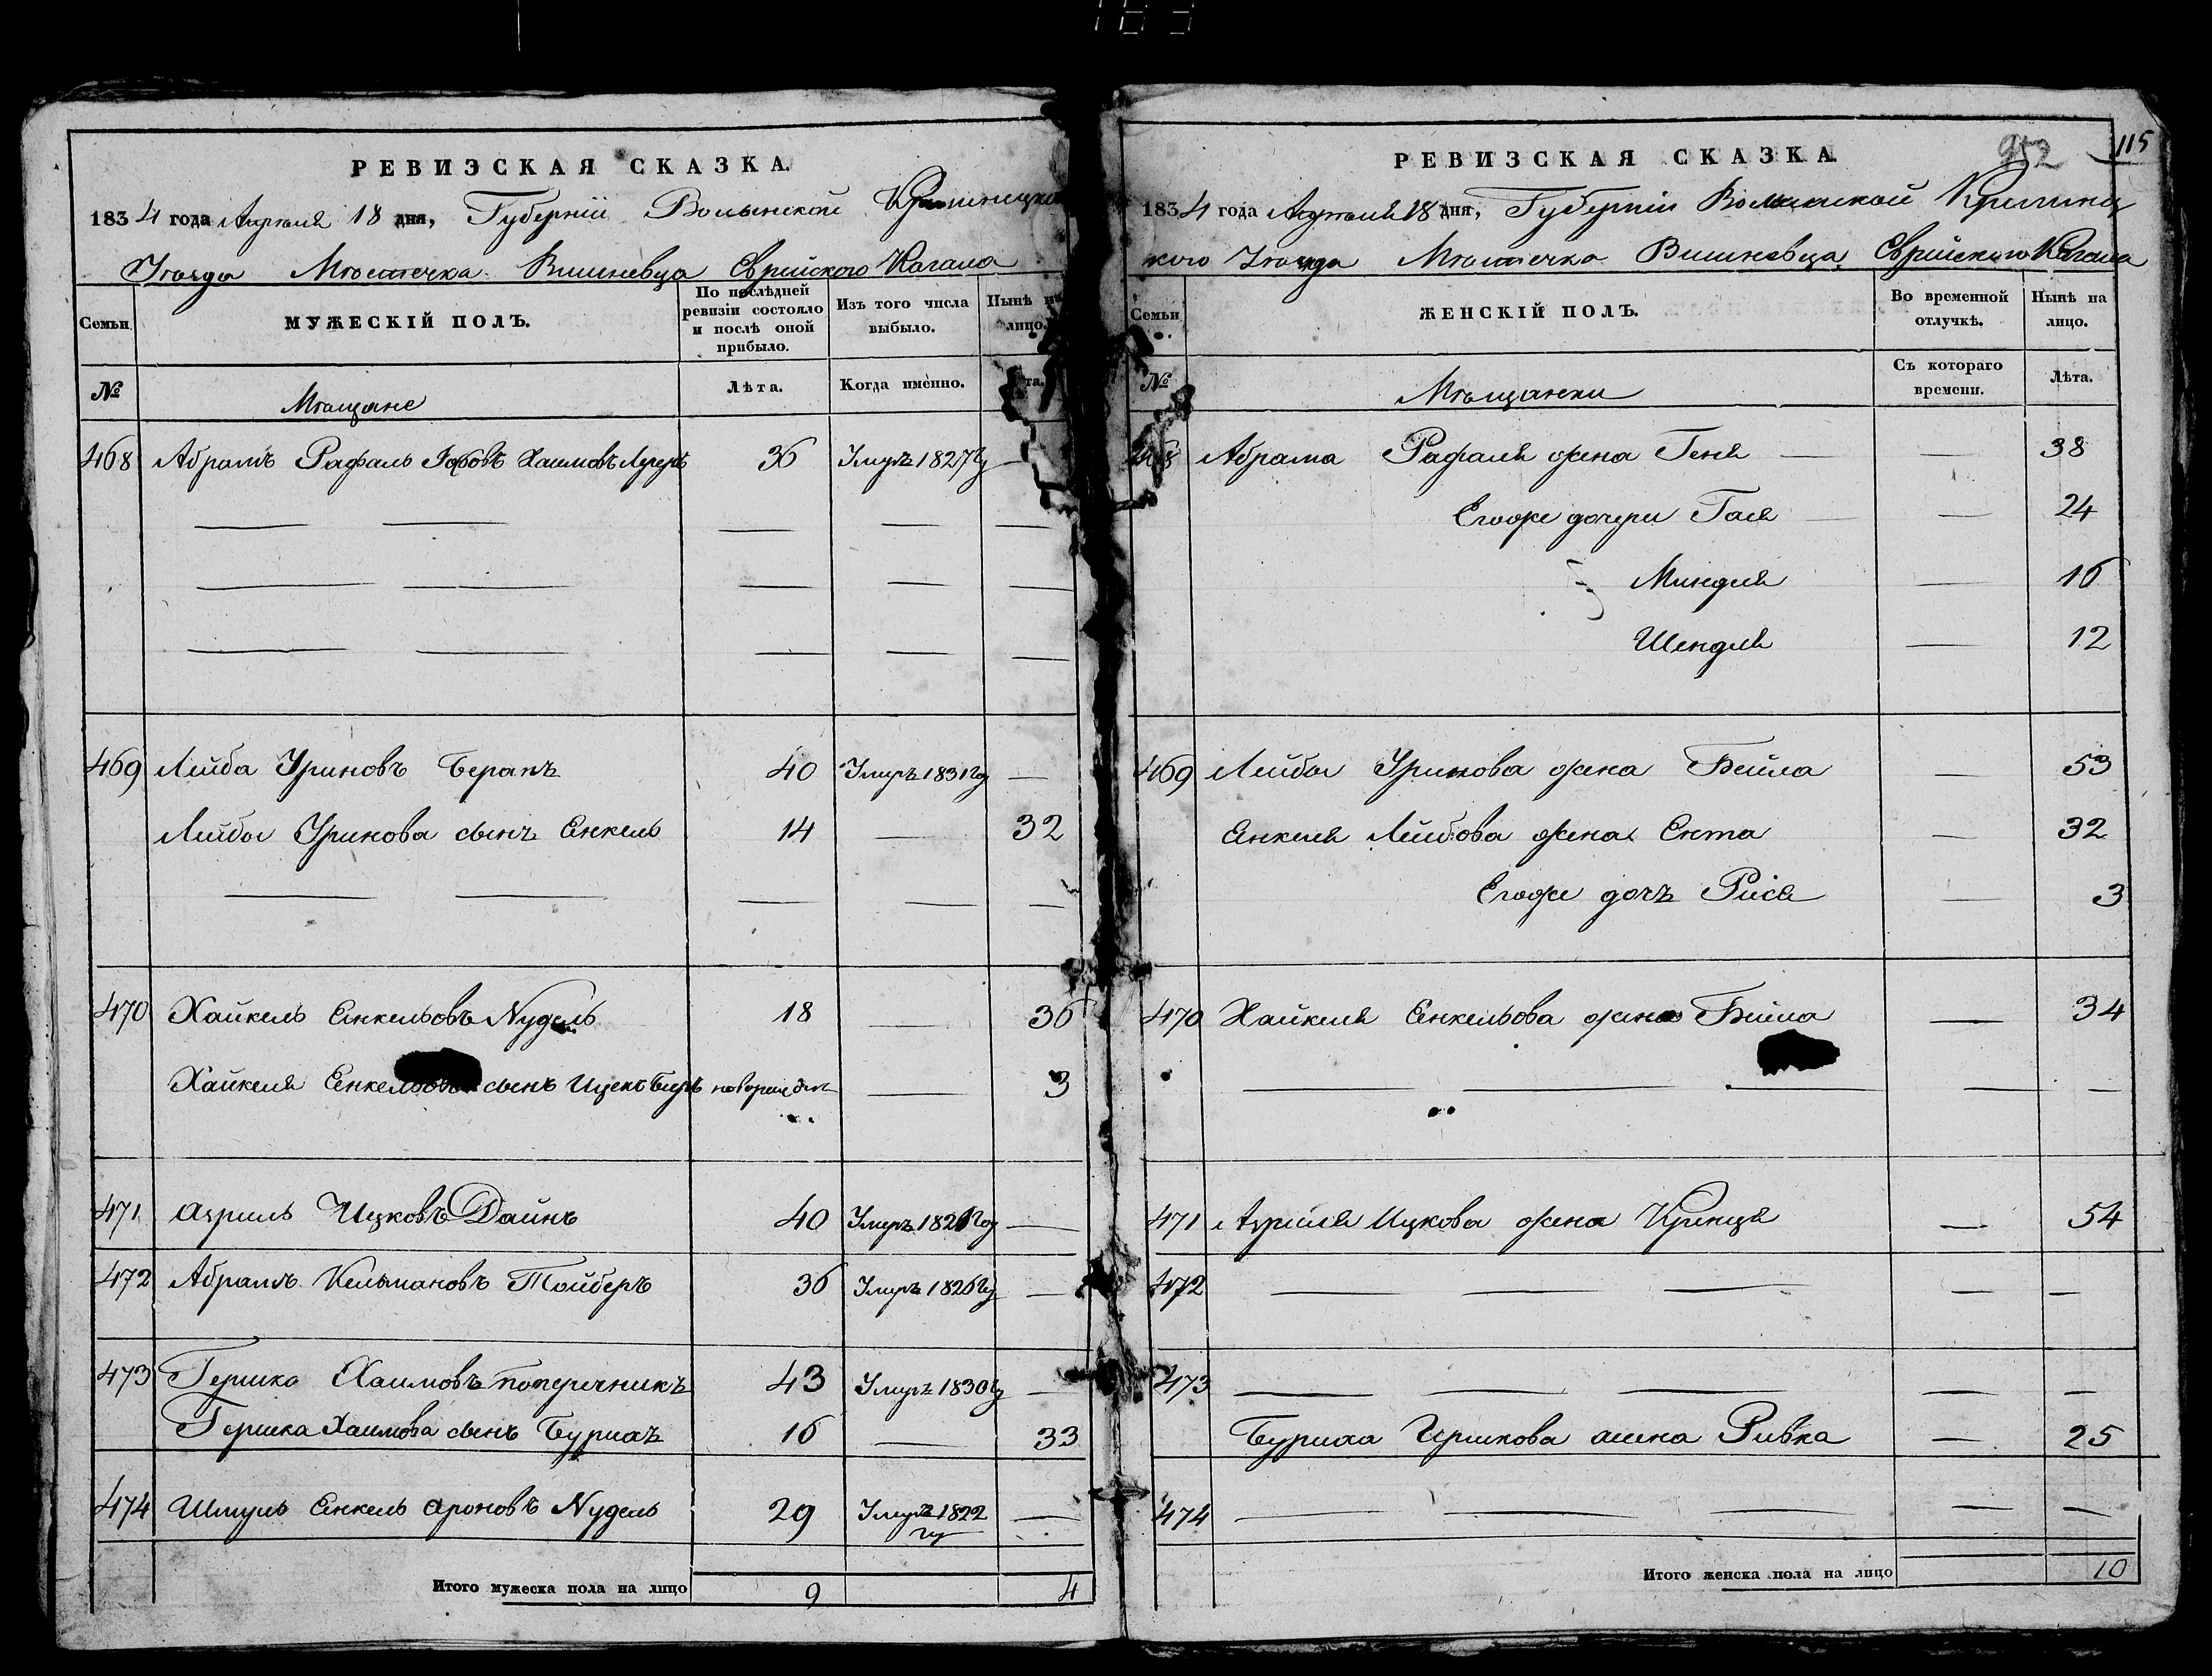 РЕВИЗСКАЯ СКАЗКА.
1834 года Апреля 18 дня, Губернiи Волынской Кременецкаго
Уѣзда Мѣстечка Вишневца Еврейского Кагала
Семьи.
МУЖЕСКIЙ ПОЛЪ.
По послѣдней ревизiи состояло и послѣ оной прибыло.
Изъ того числа выбыло.
Нынѣ на лицо.
№
Мѣщане
Лѣта.
Когда именно.
Лѣта.
468 Абрамъ Рафаль Хаимовъ 36 Умеръ 1827 —
469 Лейба Уриновъ 40 Умеръ 1831 —
Лейбы Уринова сынъ Енкель 14 — 32
470 Хайкель Енкельовъ Nудель 18 — 36
Хайкеля Енкельова сынъ Ицекъ Беръ новорожден — 3
471 Азриль Ицковъ Даинъ 40 Умеръ —
472 Абрамъ Кельмановъ Тойберъ 36 Умеръ 1826 —
473 Гершко Хаимовъ поперечникъ 43 Умеръ 1830 —
Гершка Хаимова сынъ Бурихъ 16 — 33
474 Шмуль Енкель Ароновъ Nудель 29 Умеръ 1822 —
Итого мужеска пола на лицо 9 4
952
115
РЕВИЗСКАЯ СКАЗКА.
1834 года Апреля 18 дня, Губернiи Волынской Кременец
кого Уѣзда Мѣстечка Вишневца Еврейского Кагала
Семьи.
ЖЕНСКIЙ ПОЛЪ.
Во временной отлучкѣ.
Нынѣ на лицо.
№
Мѣщанки
Съ котораго времени.
Лѣта.
468 Абрама Рафаля жена Геня — 38
Егоже дочери Гася — 24
Миндля — 16
Шендля — 12
469 Лейбы Уринова жена Бейла — 53
Енкеля Лейбова жена Ента — 32
Егоже дочъ Рися — 3
470 Хайкеля Енкельова жена Бейла — 34
471 Азриля Ицкова жена Кренця — 54
472 — — —
473 — — —
Буриха Гершкова жена Ривка — 25
474 — — —
Итого женска пола на лицо 10